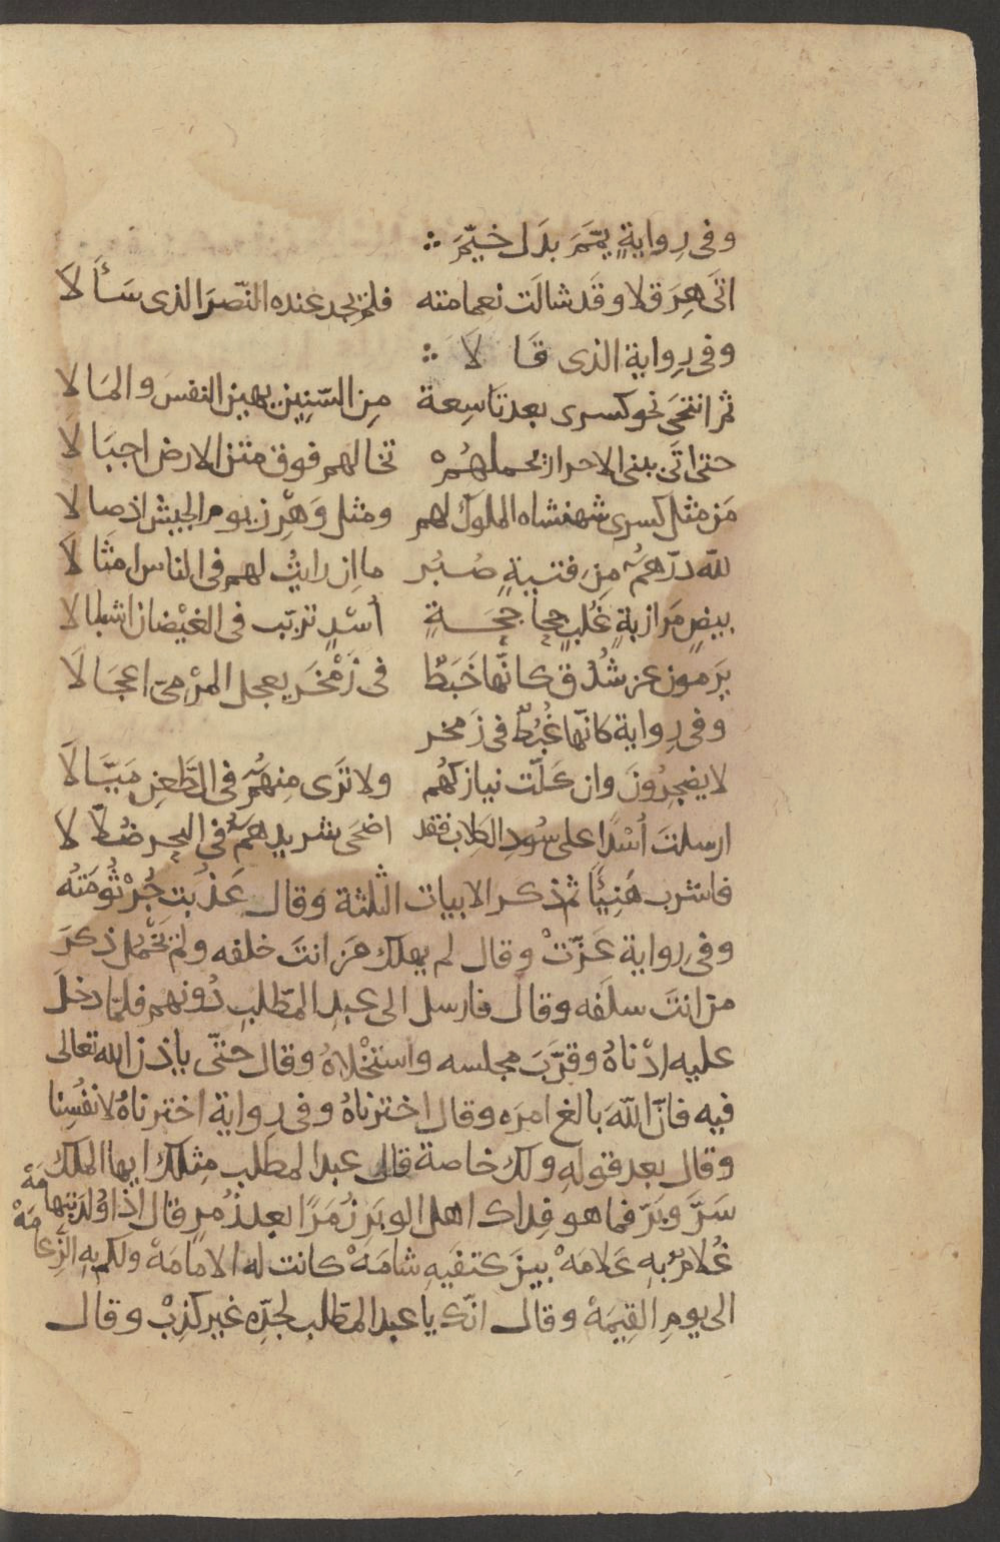 وفى رِوايةٍ يمّمَ بدَل خيّمَ ؞
اتَى هِرَقلا وقَد شالَت نعمامته فلم يجد عنده النّصرَ الذى سَأَلَا
وفى رِواية الذى قَا لَا ؞
ثم انتحَى نحو كسرى بعد تاسِعة مِن السّنِين يهين النفسَ والمَالا
حتى اتَى ببنى الاحرار يحملهُم تخالهم فوق متن الارض اجبَالَا
مَن مثل كسرى شهنشاه الملوك لهم ومثل وَهْرِز يوم الجيش اذ صالا
لله درّهمُ مِن فتيةٍ صُبُر ما ان رايتُ لهم فى الناس امثالَا
بيضٍ مَرازبةٍ غُلبٍ جحاجحَةٍ أسْدٍ تربّب فى الغيْضان اشبالا
يَرمون عن شُدُق كانّها خَبَطٌ فى زَمْخَر يعجل المرْمىّ اعجَالَا
وفى رِواية كانّها غُبُطٌ فى زَمخر
لا يضجِرُونَ وان كلّت نيازكهُم ولا تَرَى مِنهمُ فى الطَّعنِ مَيّالَا
ارسلتَ أُسْدًا على سُودِ الكلاب فقد اضحَى شريدهمُ فى البحر ضُلّالا
فاشرب هَنِيًّا ثم ذكر الابيات الثلثة وقال عَذُبت جُرْثُومَتُه
وفى رواية عَزّتْ وقال لم يهلك مَن انتَ خلفه ولم يَخْمُل ذكرَ
من انتَ سلَفه وقال فارسل الى عبد المطّلب دُونهم فلمّا دخلَ
عليه ادْناهُ وقرّبَ مجلسه واستخْلاهُ وقال حتّى ياذن الله تعالى
فيه فانّ اللّهَ بالغ امرَه وقال اخترناهُ وفى رواية اخترناهُ لانفُسِنا
وقال بعد قولهِ ولك خاصة قال عبد المطلب مِثلك ايها الملك
سَرَّ وَبَرّ فما هو فِداك اهل الوبَرِ زُمَرًا بعد زُمرٍ قال اذا وُلد بِتِهامَةْ
غُلامٌ بهِ عَلامَةْ بينَ كتفَيهِ شامَةْ كانت له الامامَةْ ولكم بِهِ الزّعامَةْ
الى يومِ القيمَةْ وقال انّك يا عبد المطّلب لجدّه غير كذِبْ وقال